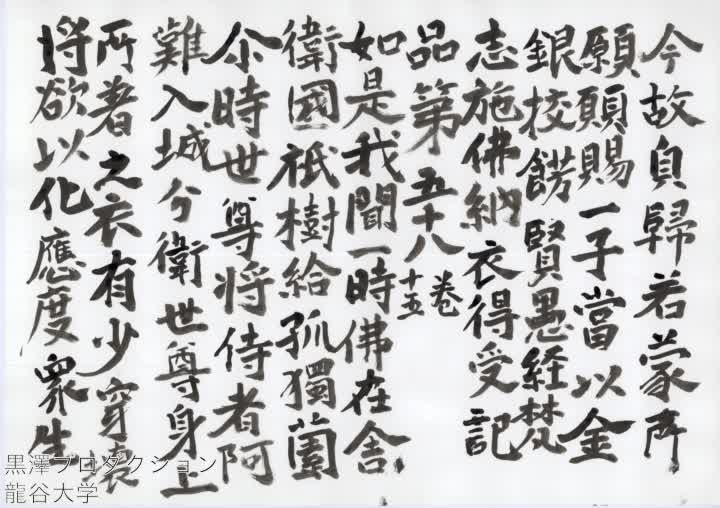 今故自歸若蒙所
願願賜一子當以金
銀校餝賢愚経梵
志施佛納衣得受記
品第五十八 卷十五
如是我聞一時佛在舎
衛國祇樹給孤獨薗
尒時世尊将侍者阿
難入城分衛世尊身上
所著之衣有少穿壞
将欲以化應度衆生
黒澤プロダクション
龍谷大学